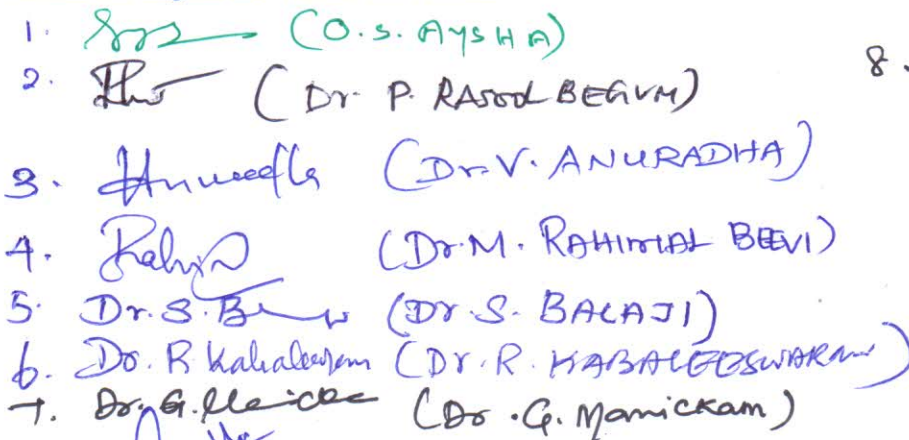 1. (O.S. AYSHA)
2. (Dr. P. RASOOL BEGUM)
8.
3. Anuradha (Dr. V. ANURADHA)
4. (Dr. M. RAHIMAL BEEVI)
5. Dr. S. B (Dr. S. BALAJI)
6. Dr. R. Kabaleeswaran (Dr. R. KABALEESWARAN)
7. Dr. G. Manicka (Dr. G. Manickam)